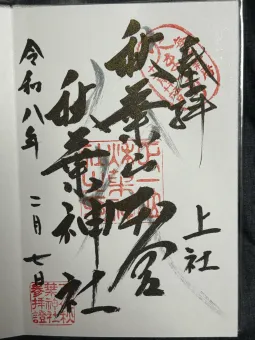 奉拝
上社
秋葉山本宮
秋葉神社
令和八年 二月七日